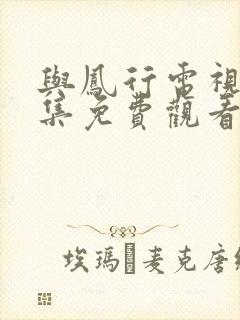 與鳳行電視
集免費觀看
埃瑪·麦克唐納